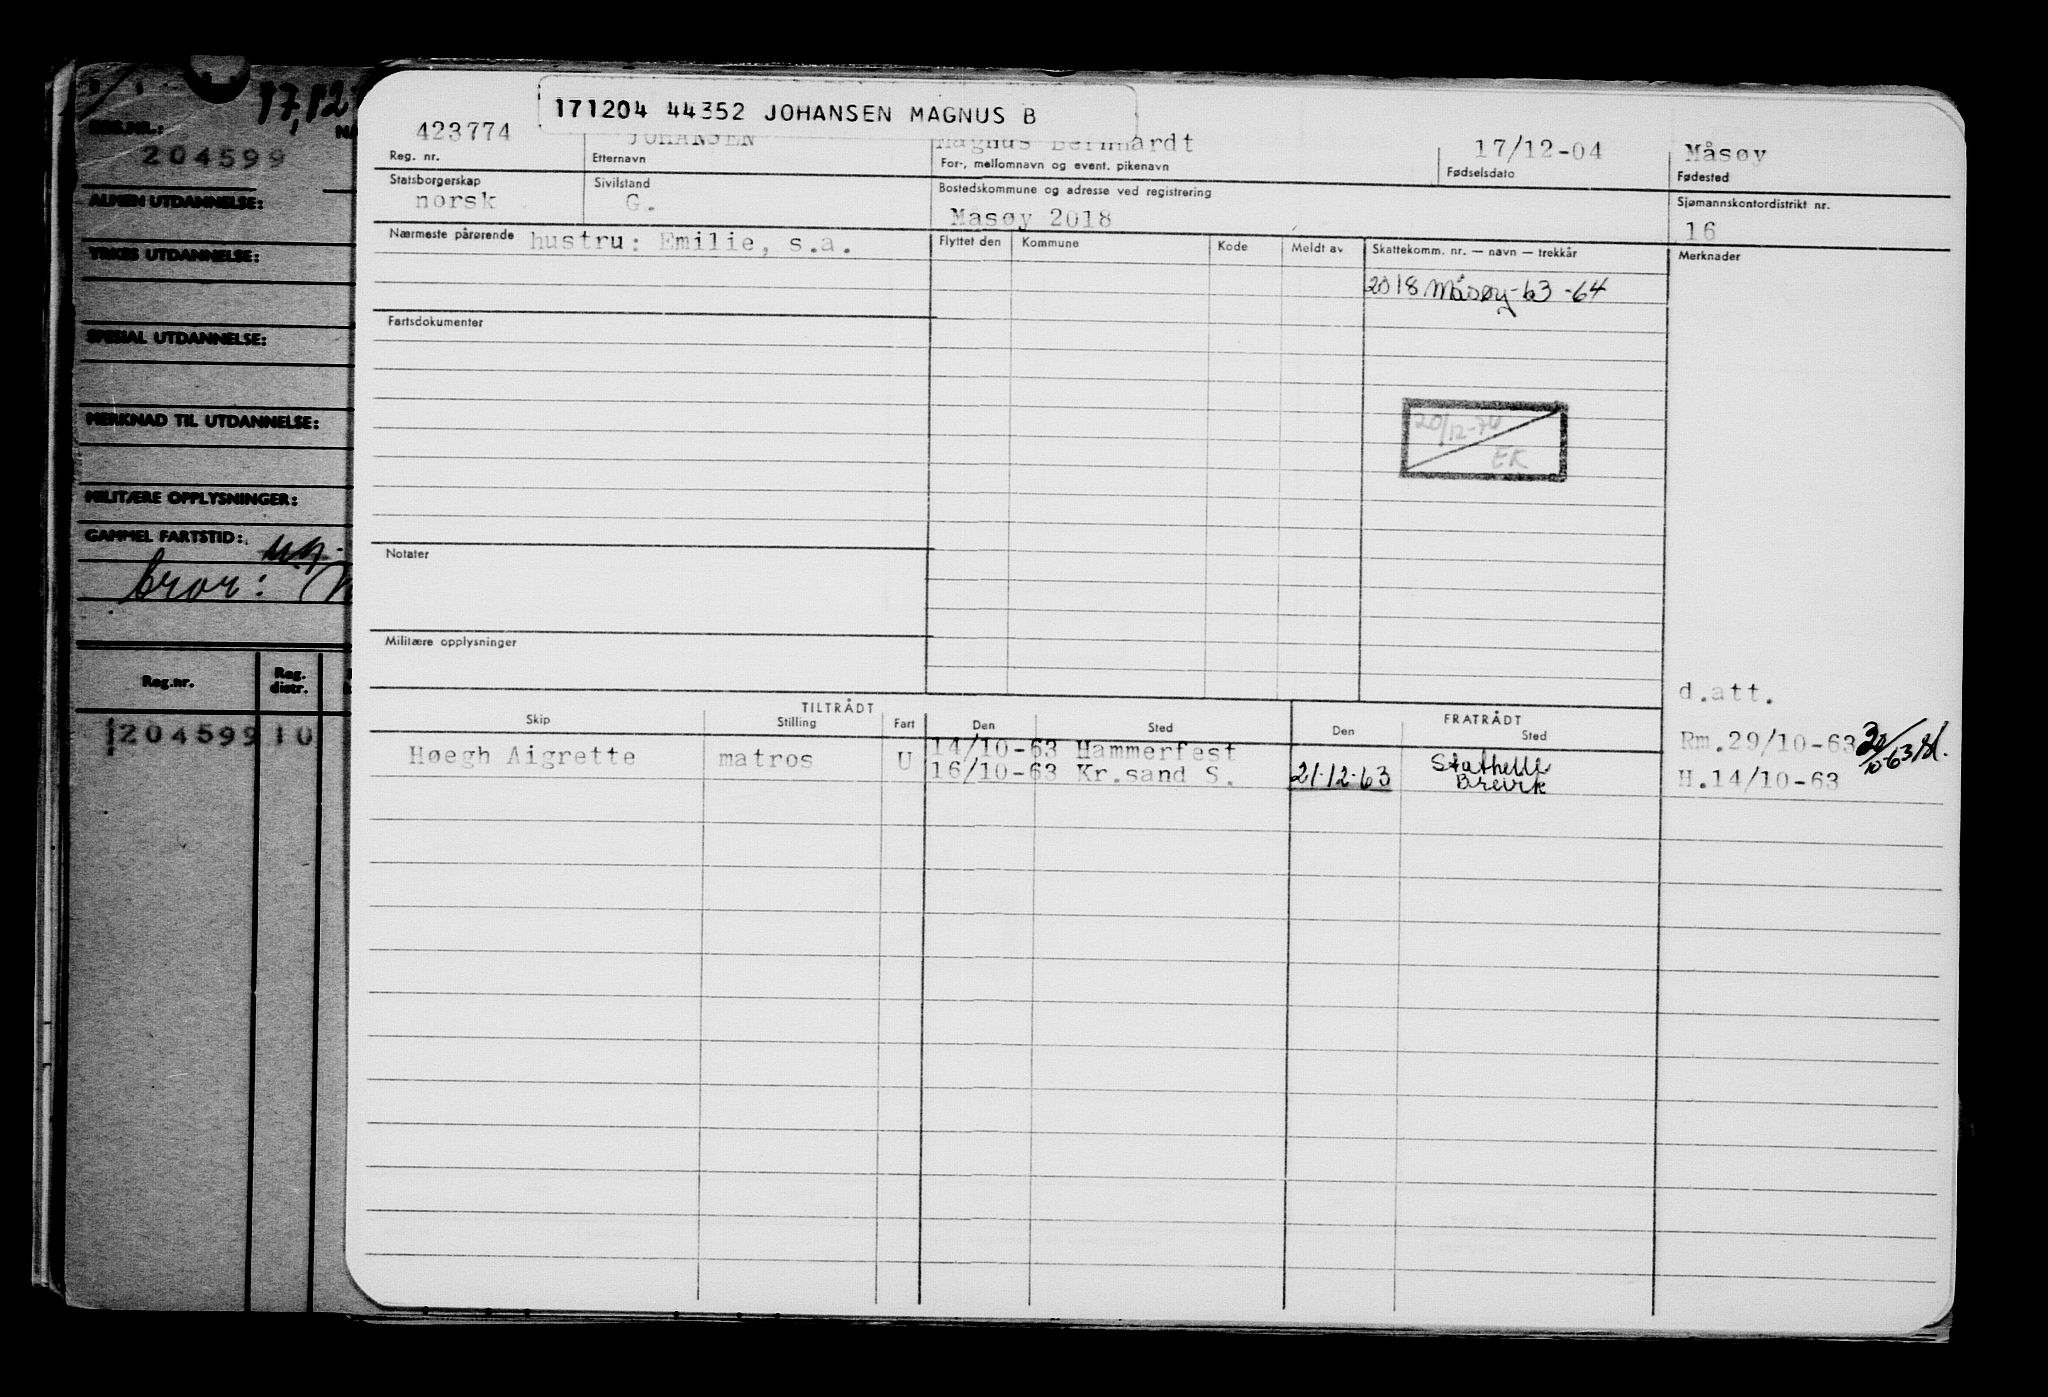 17,12
REG.NR.:
NA
204599
ALMEN UTDANNELSE:
YRKES UTDANNELSE:
SPESIAL UTDANNELSE:
MERKNAD TIL UTDANNELSE:
MILITÆRE OPPLYSNINGER:
GAMMEL FARTSTID:
bror:
Reg.nr. Reg. distr.
204599 10
171204 44352 JOHANSEN MAGNUS B
423774 JOHANSEN Magnus Bernhardt 17/12-04 Måsøy
Reg. nr. Etternavn For-, mellomnavn og event. pikenavn Fødselsdato Fødested
Statsborgerskap Sivilstand Bostedskommune og adresse ved registrering Sjømannskontordistrikt nr.
norsk G. Måsøy 2018 16
Nærmeste pårørende hustru: Emilie, s.a. Flyttet den Kommune Kode Meldt av Skattekomm. nr. — navn — trekkår Merknader
2018 Måsøy-63-64
Fartsdokumenter
20/12-70
EK
Notater
Militære opplysninger
d.att.
TILTRÅDT FRATRÅDT
Skip Stilling Fart Den Sted Den Sted
Høegh Aigrette matros U 14/10-63 Hammerfest Stathelle Rm.29/10-63
16/10-63 Kr.sand S. 21.12.63 Brevik H.14/10-63